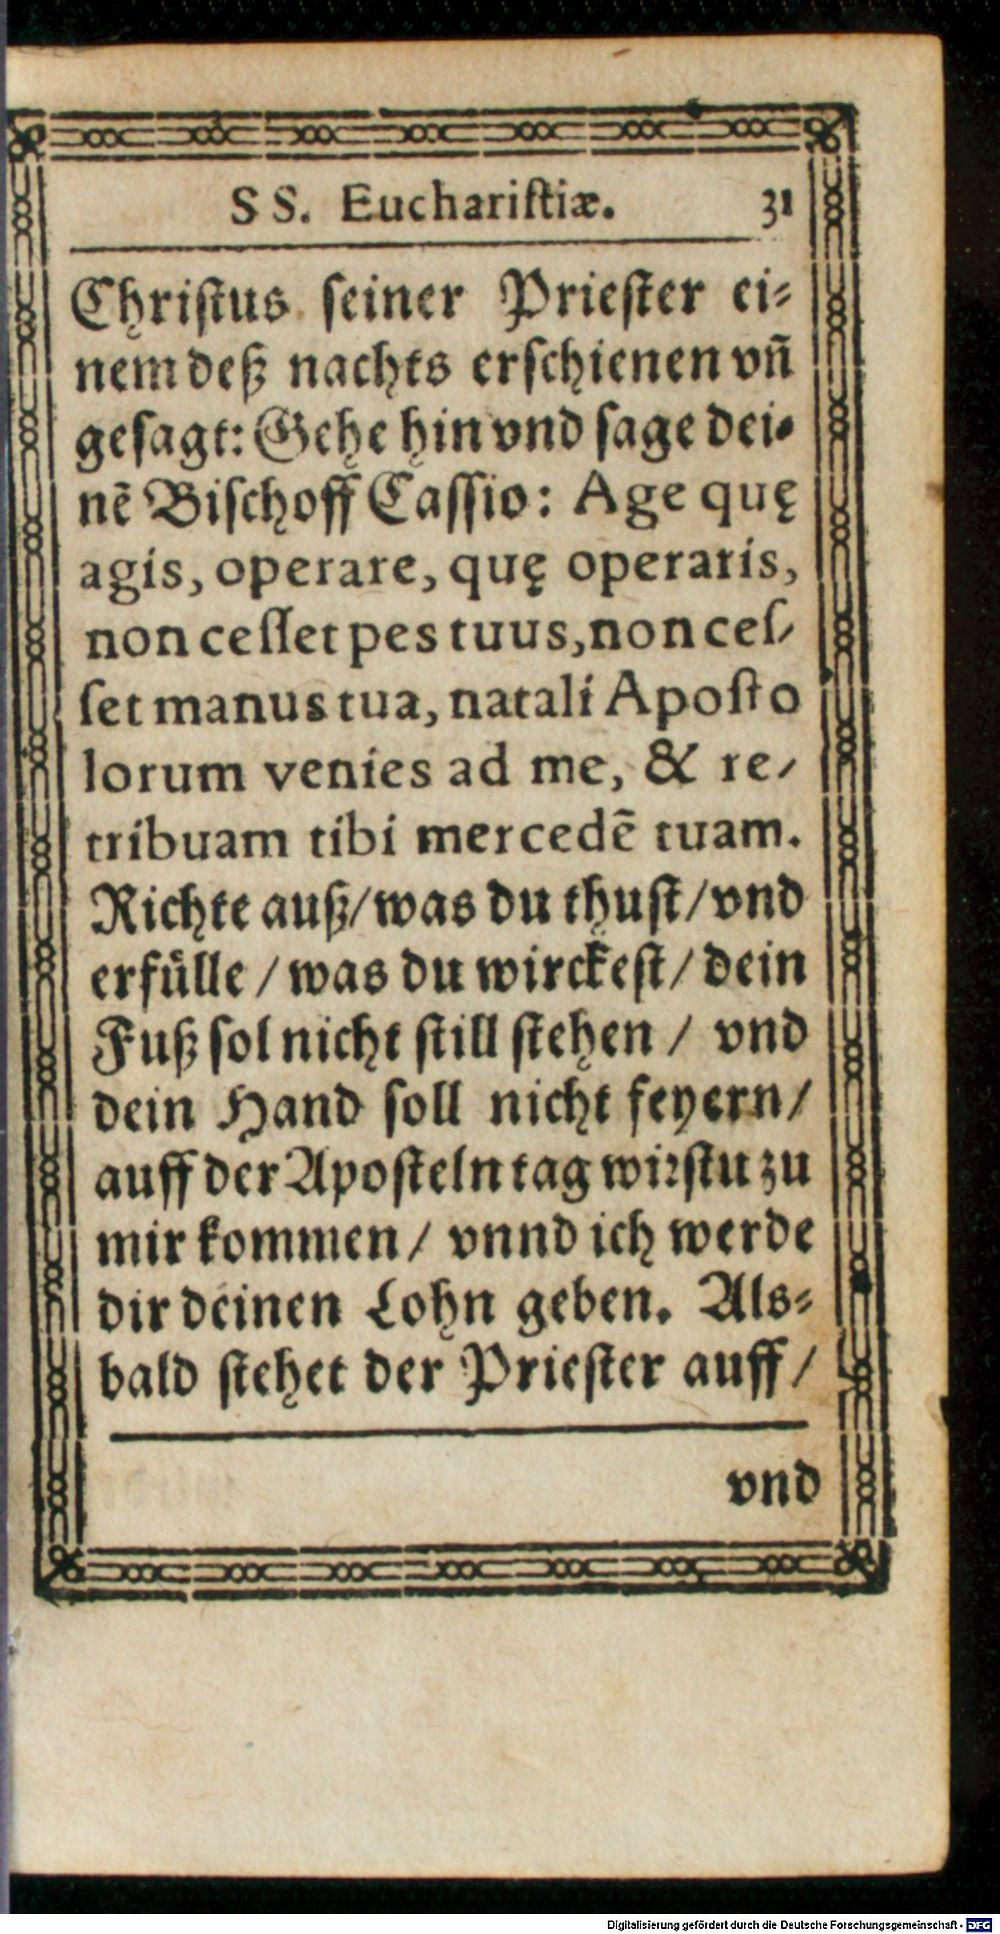 SS. Euchariſtiæ. 31
Chriſtus ſeiner Prieſter ei⸗
nem deß nachts erſchienen vn̄
geſagt: Gehe hin vnd ſage dei⸗
nē Biſchoff Caſſio: Age quę
agis, operare, quę operaris,
non ceſſet pes tuus, non ceſ-
ſet manus tua, natali Apoſto
lorum venies ad me, & re-
tribuam tibi mercedē tuam.
Richte auß/ was du thuſt/ vnd
erfülle / was du wirckeſt/ dein
Fuß ſol nicht ſtill ſtehen / vnd
dein Hand ſoll nicht feyern/
auff der Apoſteln tag wirſtu zu
mir kommen/ vnnd ich werde
dir deinen Lohn geben. Als⸗
bald ſtehet der Prieſter auff/
vnd
Digitalisierung gefördert durch die Deutsche Forschungsgemeinschaft - DFG